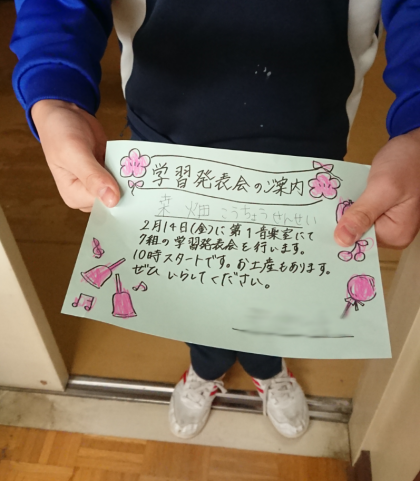 学習発表会のご案内
菜畑 こうちょうせんせい
2月14日(金)に第1音楽室にて
7組の学習発表会を行います。
10時スタートです。お土産もあります。
ぜひ いらしてください。